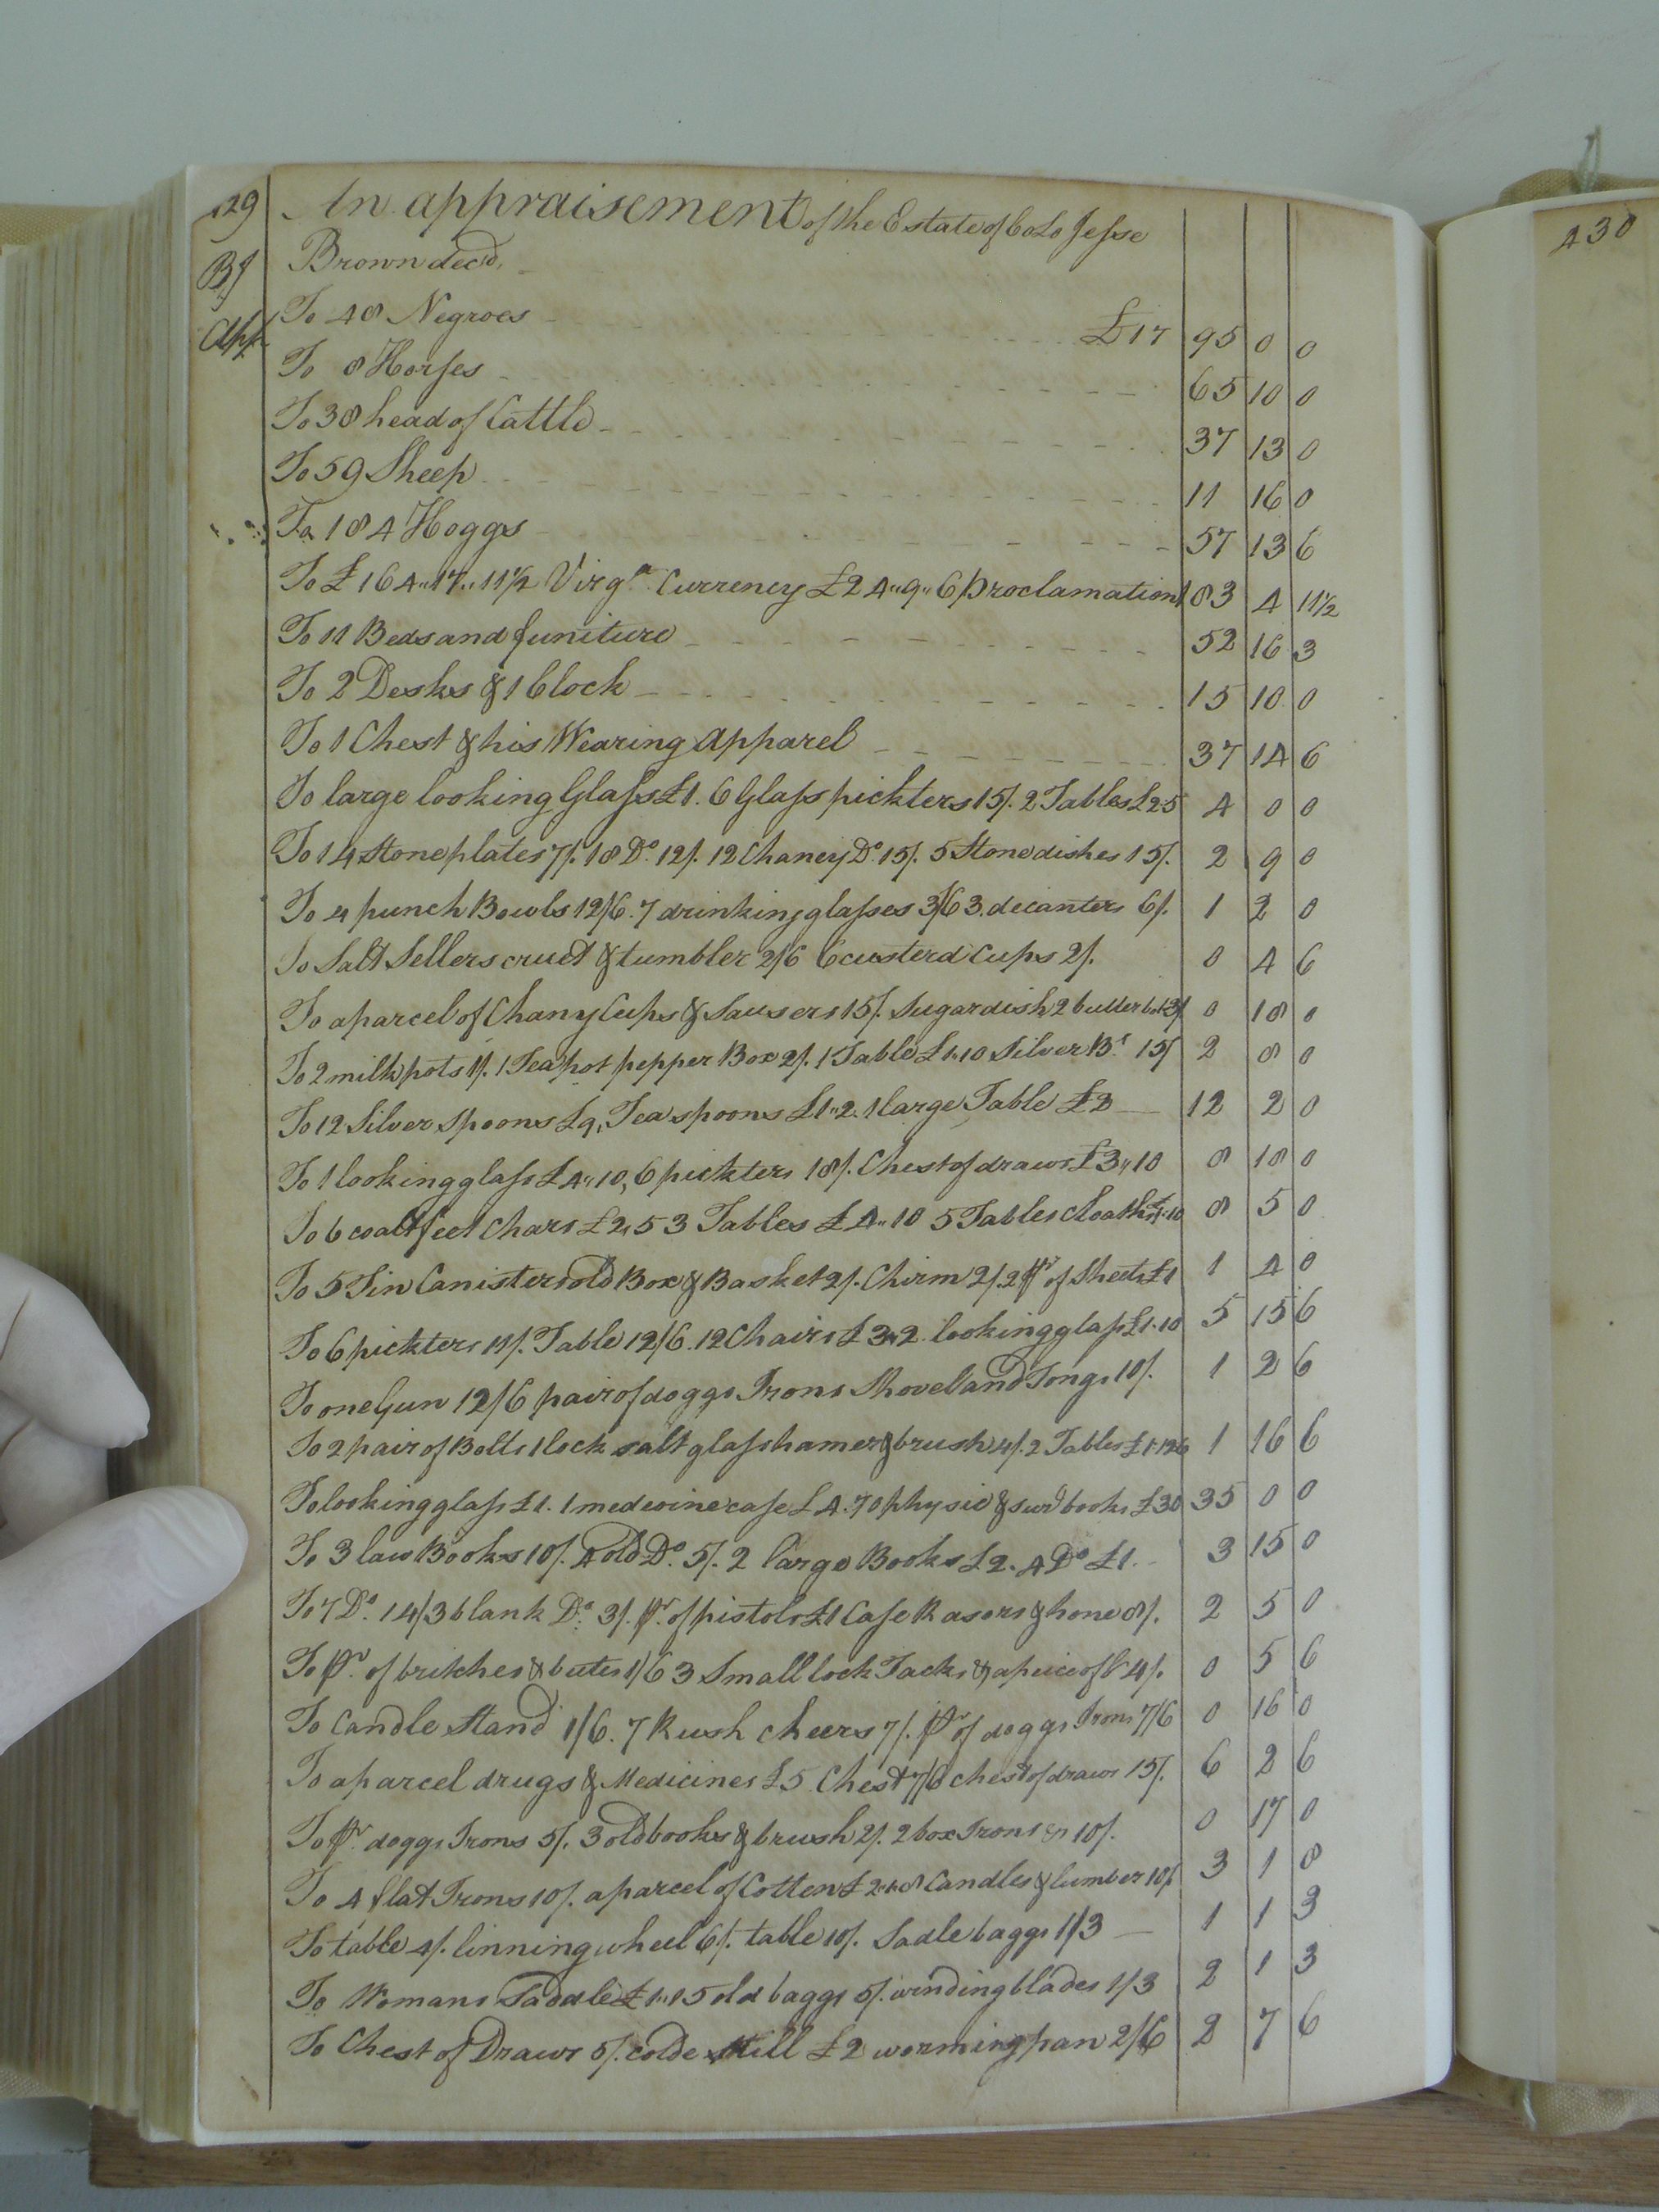 429 An appraisement of the Estate of Colo Jesse
Bf Brown decd.
App To 48 Negroes £17 95 0 0
To 8 Horses 65 10 0
To 38 head of Cattle 37 13 0
To 59 Sheep 11 16 0
To 184 Hoggs 57 13 6
To £164"17"11½ Virga. Currency £24"9"6 Proclamation 183 4 11½
To 11 Beds and funiture 52 16 3
To 2 Desks & 1 Clock 15 10 0
To 1 Chest & his Wearing Apparel 37 14 6
To large looking Glass £1. 6 Glass pickters 15/. 2 Tables £2.5 4 0 0
To 14 Stone plates 7/. 18 Do. 12/. 12 Chaney Do. 15/. 5 Stone dishes 15/. 2 9 0
To 4 punch Bowls 12/6. 7 drinking glasses 3/6 3. decanters 6/. 1 2 0
To Salt Sellers cruet & tumbler 2/6 6 custerd Cups 2/. 0 4 6
To a parcel of Chany Cups & Sausers 15/. Sugar dish 2 butter bots 3/ 0 18 0
To 2 milk pots 1/. 1 Tea pot pepper Box 2/. 1 Table £1"10 Silver B. 15/ 2 8 0
To 12 Silver Spoons £9, Tea spoons £1"2. 1 large Table £2 12 2 0
To 1 looking glass £4"10, 6 pickters 18/. Chest of draws £3"10 8 18 0
To 6 coalt feet Chars £2,5 3 Tables £4"10 5 Tables cloaths £1.10 8 5 0
To 5 Tin Canisters old Box & Basket 2/. Chirm 2/. 2 pr of Sheets £1 1 4 0
To 6 pickters 11/. Table 12/6. 12 Chairs £3"2. looking glass £1.10 5 15 6
To one Gun 12/6 pair of doggs Irons Shovel and Tongs 10/. 1 2 6
To 2 pair of Bolts 1 lock salt glass hamer & brush 4/. 2 Tables £1.12.6 1 16 6
To looking glass £1. 1 medecine case £4. 70 physic & sur books £30 35 0 0
To 3 law Books 10/. 4 old Do. 5/. 2 large Books £2. 4 Do £1. 3 15 0
To 7 Do. 14/ 3 blank Do. 3/. pr. of pistols £1 Case Rasors & hone 8/. 2 5 0
To pr. of britches & butes 1/6 3 Small lock Tacks & a peice of 4/. 0 5 6
To Candle Stand 1/6. 7 Rush cheers 7/. pr of doggs Irons 7/6 0 16 0
To a parcel drugs & Medicines £5 Chest 7/6 chest of draws 15/. 6 2 6
To pr. doggs Irons 5/. 3 old books & brush 2/. 2 box Irons 10/. 0 17 0
To 4 flat Irons 10/. a parcel of Cotten £2"1"8 Candles & lumber 10/. 3 1 8
To table 4/. linning wheel 6/. table 10/. Sadle baggs 1/3 1 1 3
To Womans Saddle £1"15 old baggs 5/. winding blades 1/3 2 1 3
To Chest of Draws 5/. colde still £2 worming pan 2/6 2 7 6
430